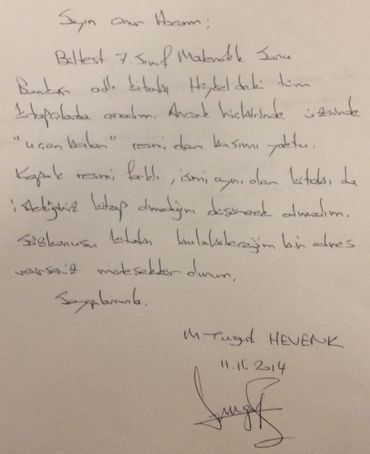 Sayın Onur Hocam;
Biltest 7. Sınıf Matematik Soru
Bankası adlı kitabı Heykel'deki tüm
kitapçılarda aradım. Ancak hiçbirinde üzerinde
"uçan balon" resmi olan basımı yoktu.
Kapak resmi farklı, ismi aynı olan kitabı da
istediğiniz kitap olmadığını düşünerek almadım.
Sözkonusu kitabı bulabileceğim bir adres
verirseniz müteşekkir olurum.
Saygılarımla.
M. Turgut HEVENK
11.11.2014